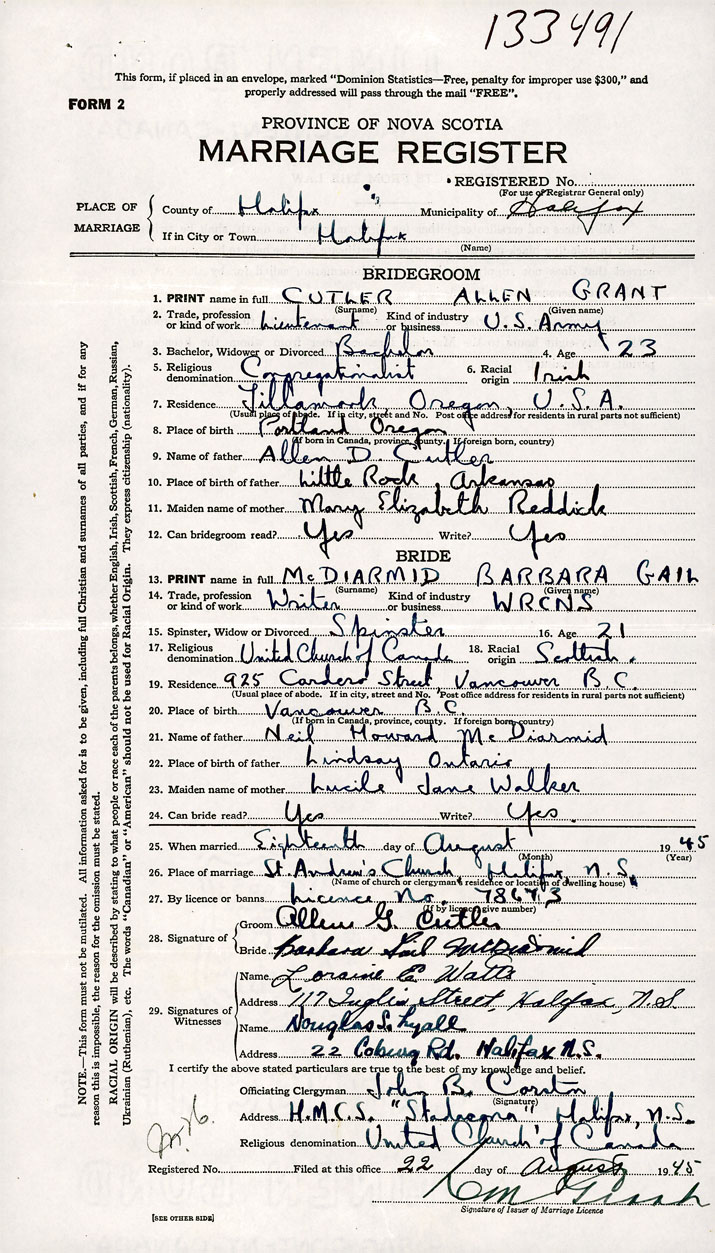 133491
This form, if placed in an envelope, marked "Dominion Statistics—Free, penalty for improper use $300," and
properly addressed will pass through the mail "FREE".
FORM 2
PROVINCE OF NOVA SCOTIA
MARRIAGE REGISTER
REGISTERED No.
(For use of Registrar General only)
PLACE OF MARRIAGE
County of Halifax Municipality of Halifax
If in City or Town Halifax
(Name)
BRIDEGROOM
1. PRINT name in full CUTLER ALLEN GRANT
(Surname) (Given name)
2. Trade, profession or kind of work Lieutenant Kind of industry or business U.S. Army
3. Bachelor, Widower or Divorced Bachelor 4. Age 23
5. Religious denomination Congregationalist 6. Racial origin Irish
7. Residence Tillamook, Oregon, U.S.A.
(Usual place of abode. If in city, street and No. Post office address for residents in rural parts not sufficient)
8. Place of birth Portland Oregon
(If born in Canada, province, county. If foreign born, country)
9. Name of father Allen D. Cutler
10. Place of birth of father Little Rock, Arkansas
11. Maiden name of mother Mary Elizabeth Reddick
12. Can bridegroom read? Yes Write? Yes
BRIDE
13. PRINT name in full McDIARMID BARBARA GAIL
(Surname) (Given name)
14. Trade, profession or kind of work Writer Kind of industry or business WRCNS
15. Spinster, Widow or Divorced Spinster 16. Age 21
17. Religious denomination United Church of Canada 18. Racial origin Scottish.
19. Residence 925 Cardero Street, Vancouver B.C.
(Usual place of abode. If in city, street and No. Post office address for residents in rural parts not sufficient)
20. Place of birth Vancouver B.C.
(If born in Canada, province, county. If foreign born, country)
21. Name of father Neil Howard McDiarmid
22. Place of birth of father Lindsay Ontario
23. Maiden name of mother Lucile Jane Walker
24. Can bride read? Yes Write? Yes.
25. When married Eighteenth day of August 1945
(Month) (Year)
26. Place of marriage St. Andrew's Church, Halifax, N.S.
(Name of church or clergyman's residence or location of dwelling house)
27. By licence or banns Licence No. 78673
(If by licence, give number)
28. Signature of
Groom Allen G. Cutler
Bride Barbara Gail McDiarmid
29. Signatures of Witnesses
Name Loraine E Watts
Address 117 Inglis Street, Halifax, N.S.
Name Douglas L. Lyall
Address 22 Coburg Rd. Halifax N.S.
I certify the above stated particulars are true to the best of my knowledge and belief.
Officiating Clergyman John B.
(Signature)
Address H.M.C.S. "Stadacona" Halifax, N.S.
Religious denomination United Church of Canada
Registered No. Filed at this office 22 day of August 1945
Signature of Issuer of Marriage Licence
[SEE OTHER SIDE]
NOTE.—This form must not be mutilated. All information asked for is to be given, including full Christian and surnames of all parties, and if for any
reason this is impossible, the reason for the omission must be stated.
RACIAL ORIGIN will be described by stating to what people or race each of the parents belongs, whether English, Irish, Scottish, French, German, Russian,
Ukrainian (Ruthenian), etc. The words "Canadian" or "American" should not be used for Racial Origin. They express citizenship (nationality).